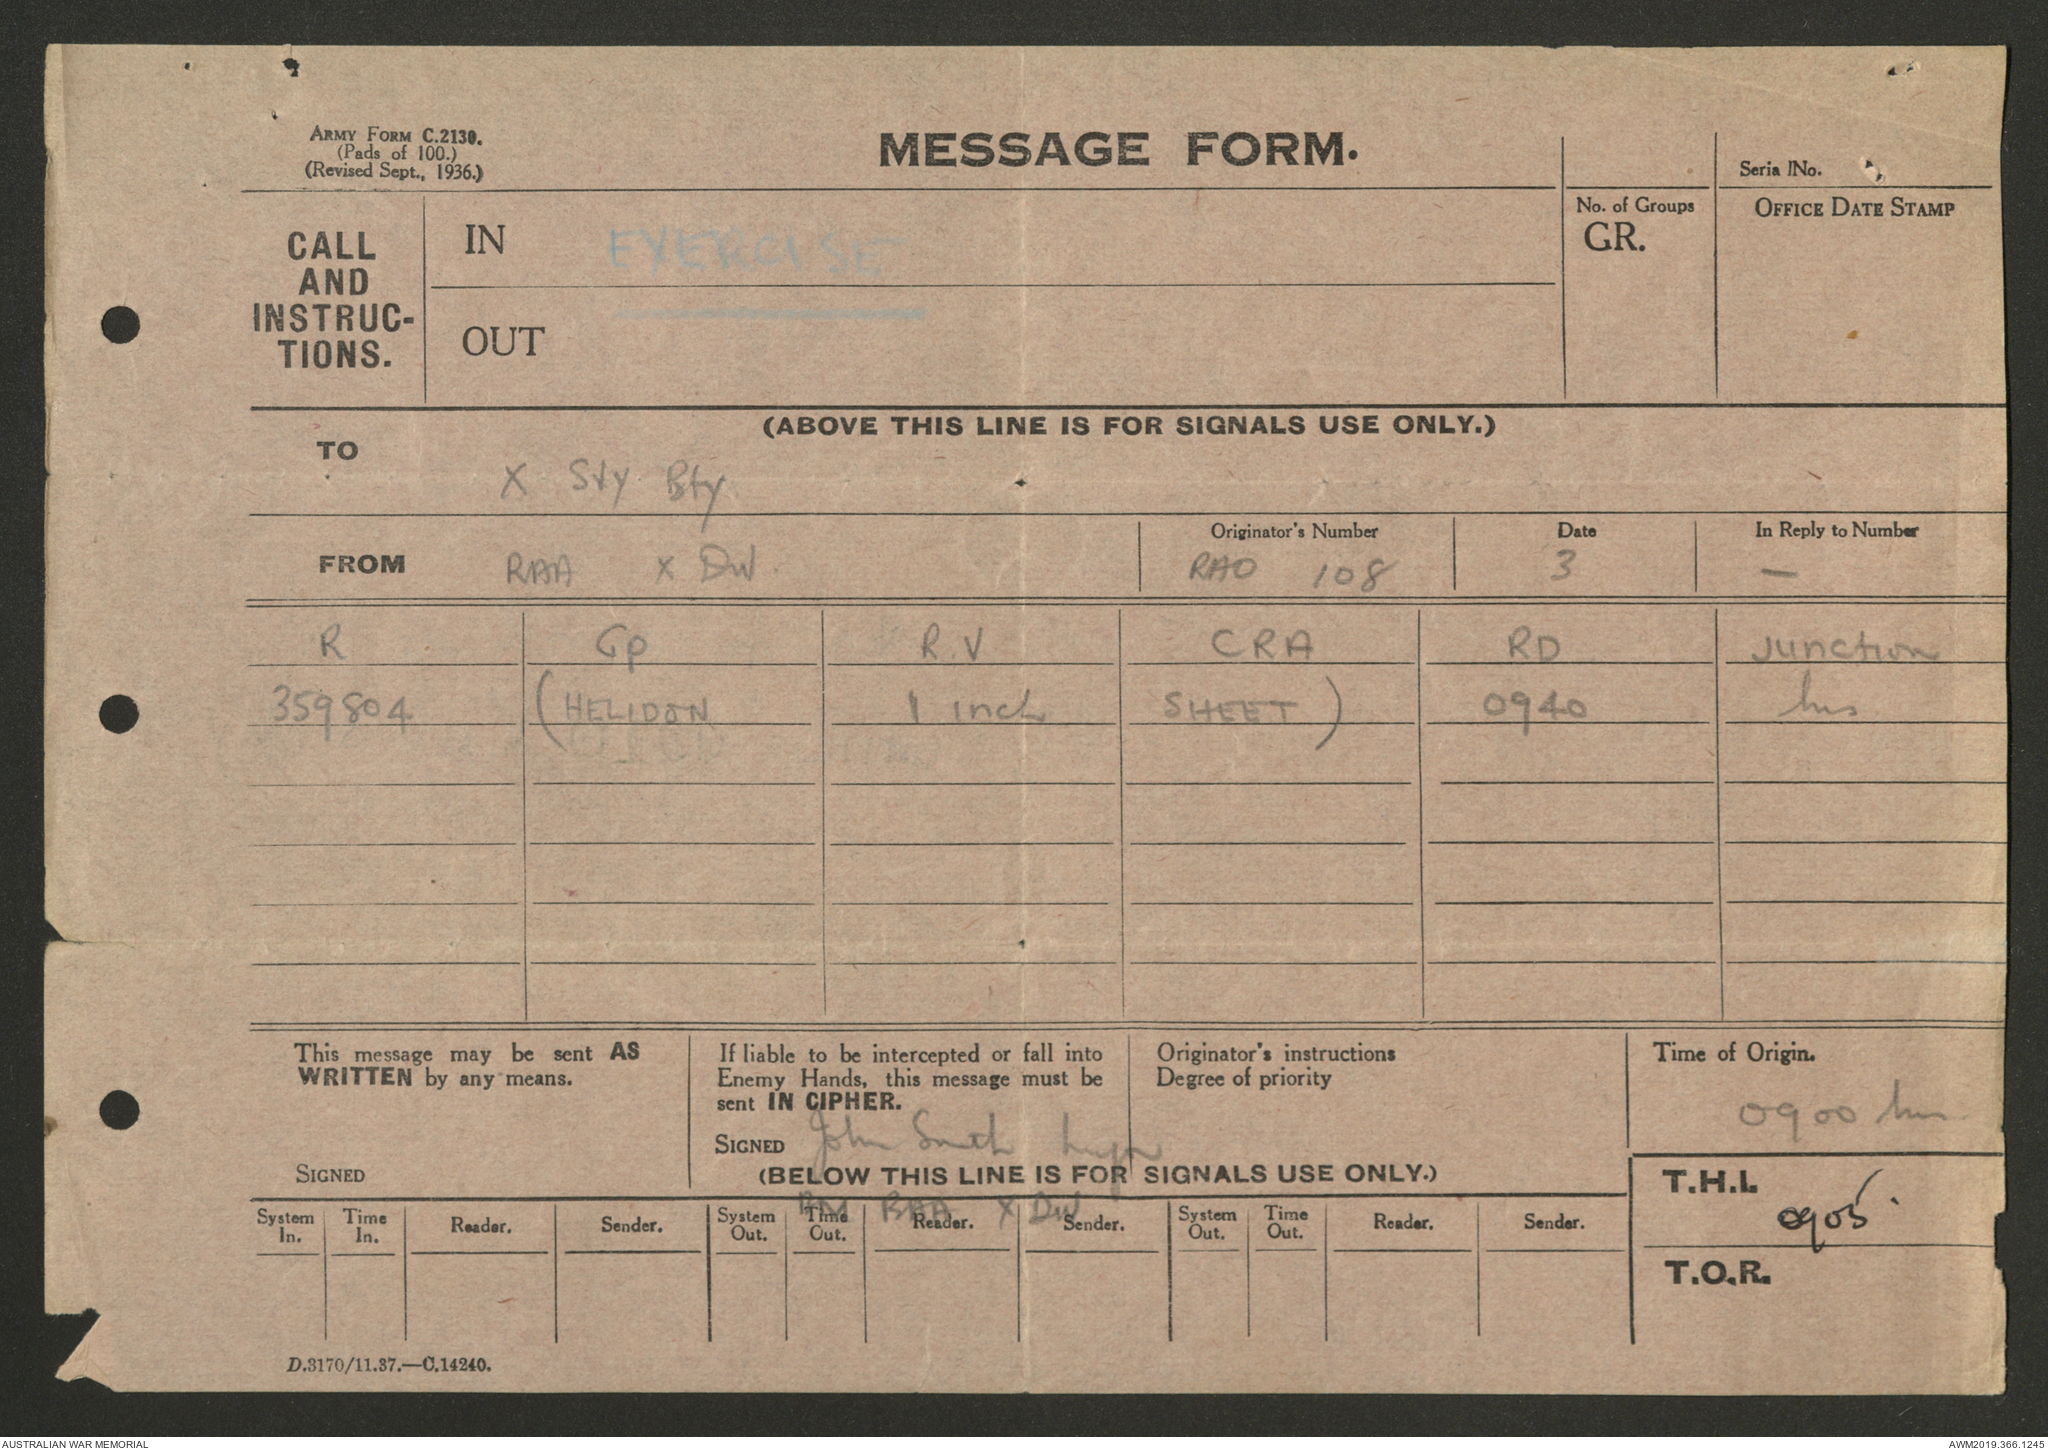 ARMY FORM C.2130.
(Pads of 100.)
(Revised Sept., 1936.)
MESSAGE FORM.
Seria lNo.
CALL AND INSTRUC-TIONS.
IN EXERCISE
OUT
No. of Groups
GR.
OFFICE DATE STAMP
(ABOVE THIS LINE IS FOR SIGNALS USE ONLY.)
TO X Svy Bty
FROM RAA X Div
Originator's Number RAO 108
Date 3
In Reply to Number —
R Gp R.V CRA RD Junction
359804 (HELIDON 1 inch SHEET) 0940 hrs
This message may be sent AS
WRITTEN by any means.
SIGNED
If liable to be intercepted or fall into
Enemy Hands, this message must be
sent IN CIPHER.
SIGNED John Smith
Originator's instructions
Degree of priority
Time of Origin.
0900 hrs
(BELOW THIS LINE IS FOR SIGNALS USE ONLY.)
BM RAA X Div
T.H.I. 0905.
T.O.R.
System In. Time In. Reader. Sender. System Out. Time Out. Reader. Sender. System Out. Time Out. Reader. Sender.
D.3170/11.37.—C.14240.
AUSTRALIAN WAR MEMORIAL
AWM2019.366.1245